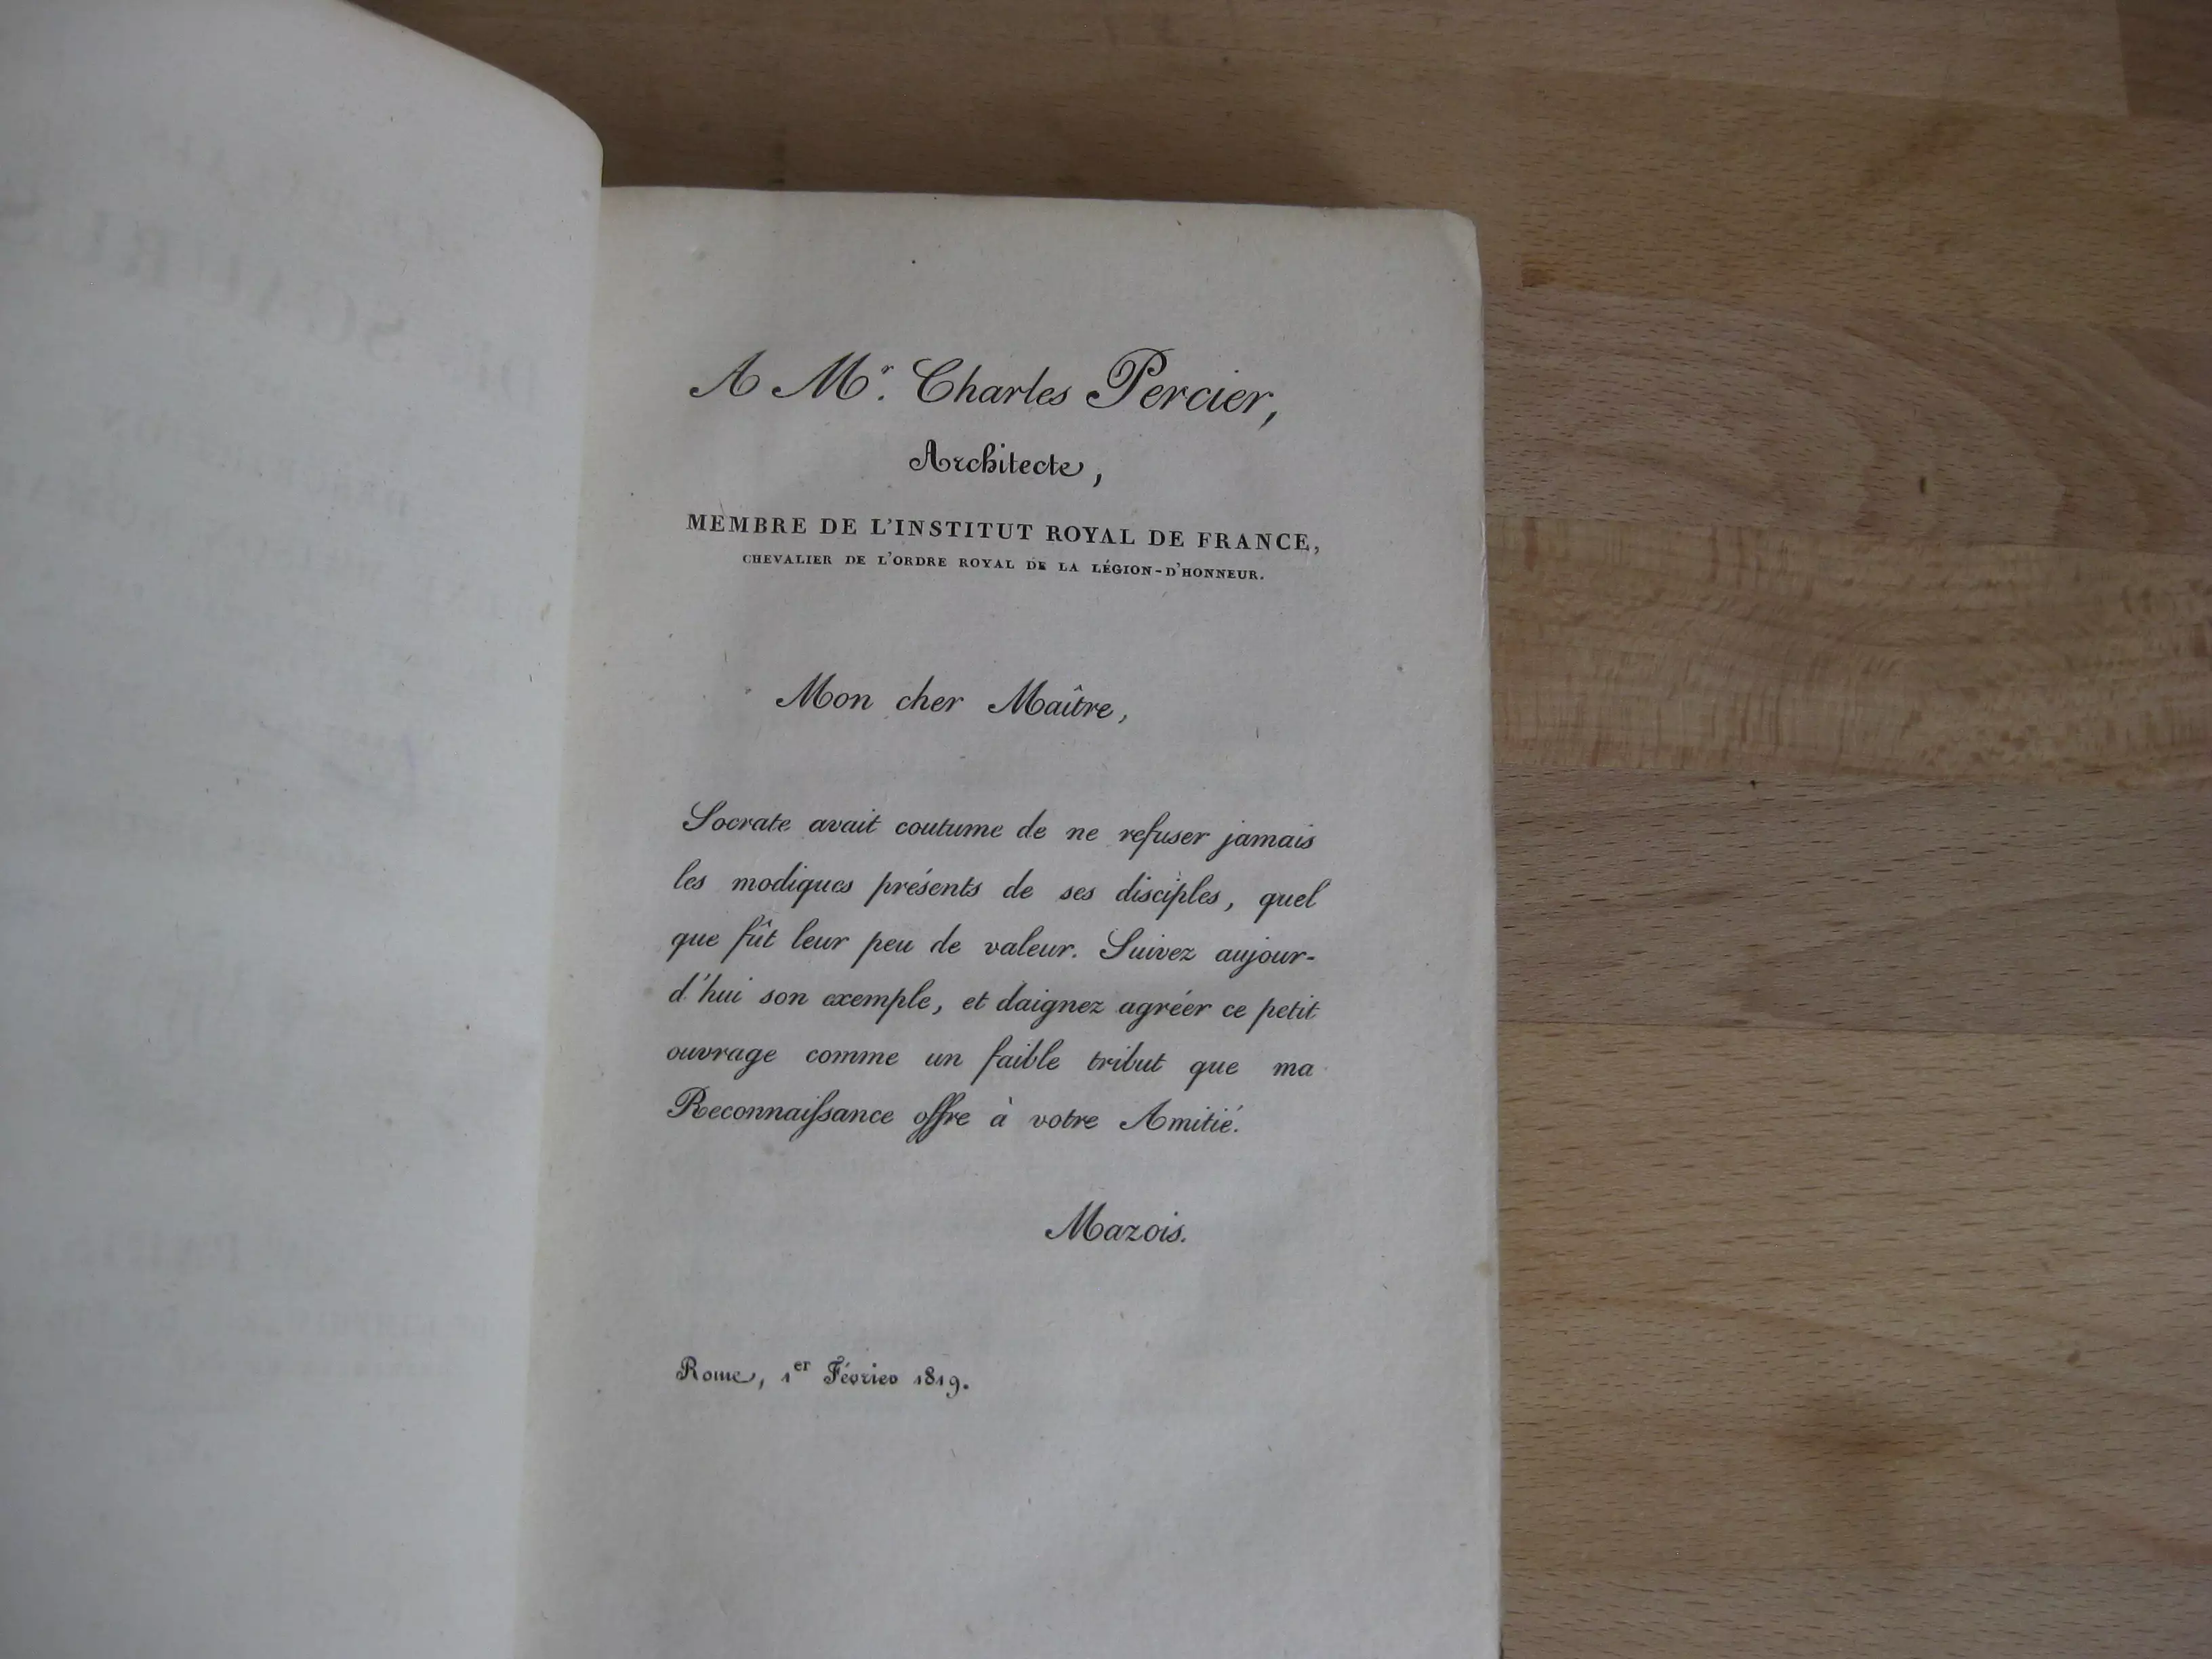 A Mr. Charles Percier,
Architecte,
MEMBRE DE L'INSTITUT ROYAL DE FRANCE,
CHEVALIER DE L'ORDRE ROYAL DE LA LÉGION-D'HONNEUR.
Mon cher Maître,
Socrate avait coutume de ne refuser jamais
les modiques présents de ses disciples, quel
que fût leur peu de valeur. Suivez aujour-
d'hui son exemple, et daignez agréer ce petit
ouvrage comme un faible tribut que ma
Reconnaiſsance offre à votre Amitié.
Mazois.
Rome, 1er Février 1819.